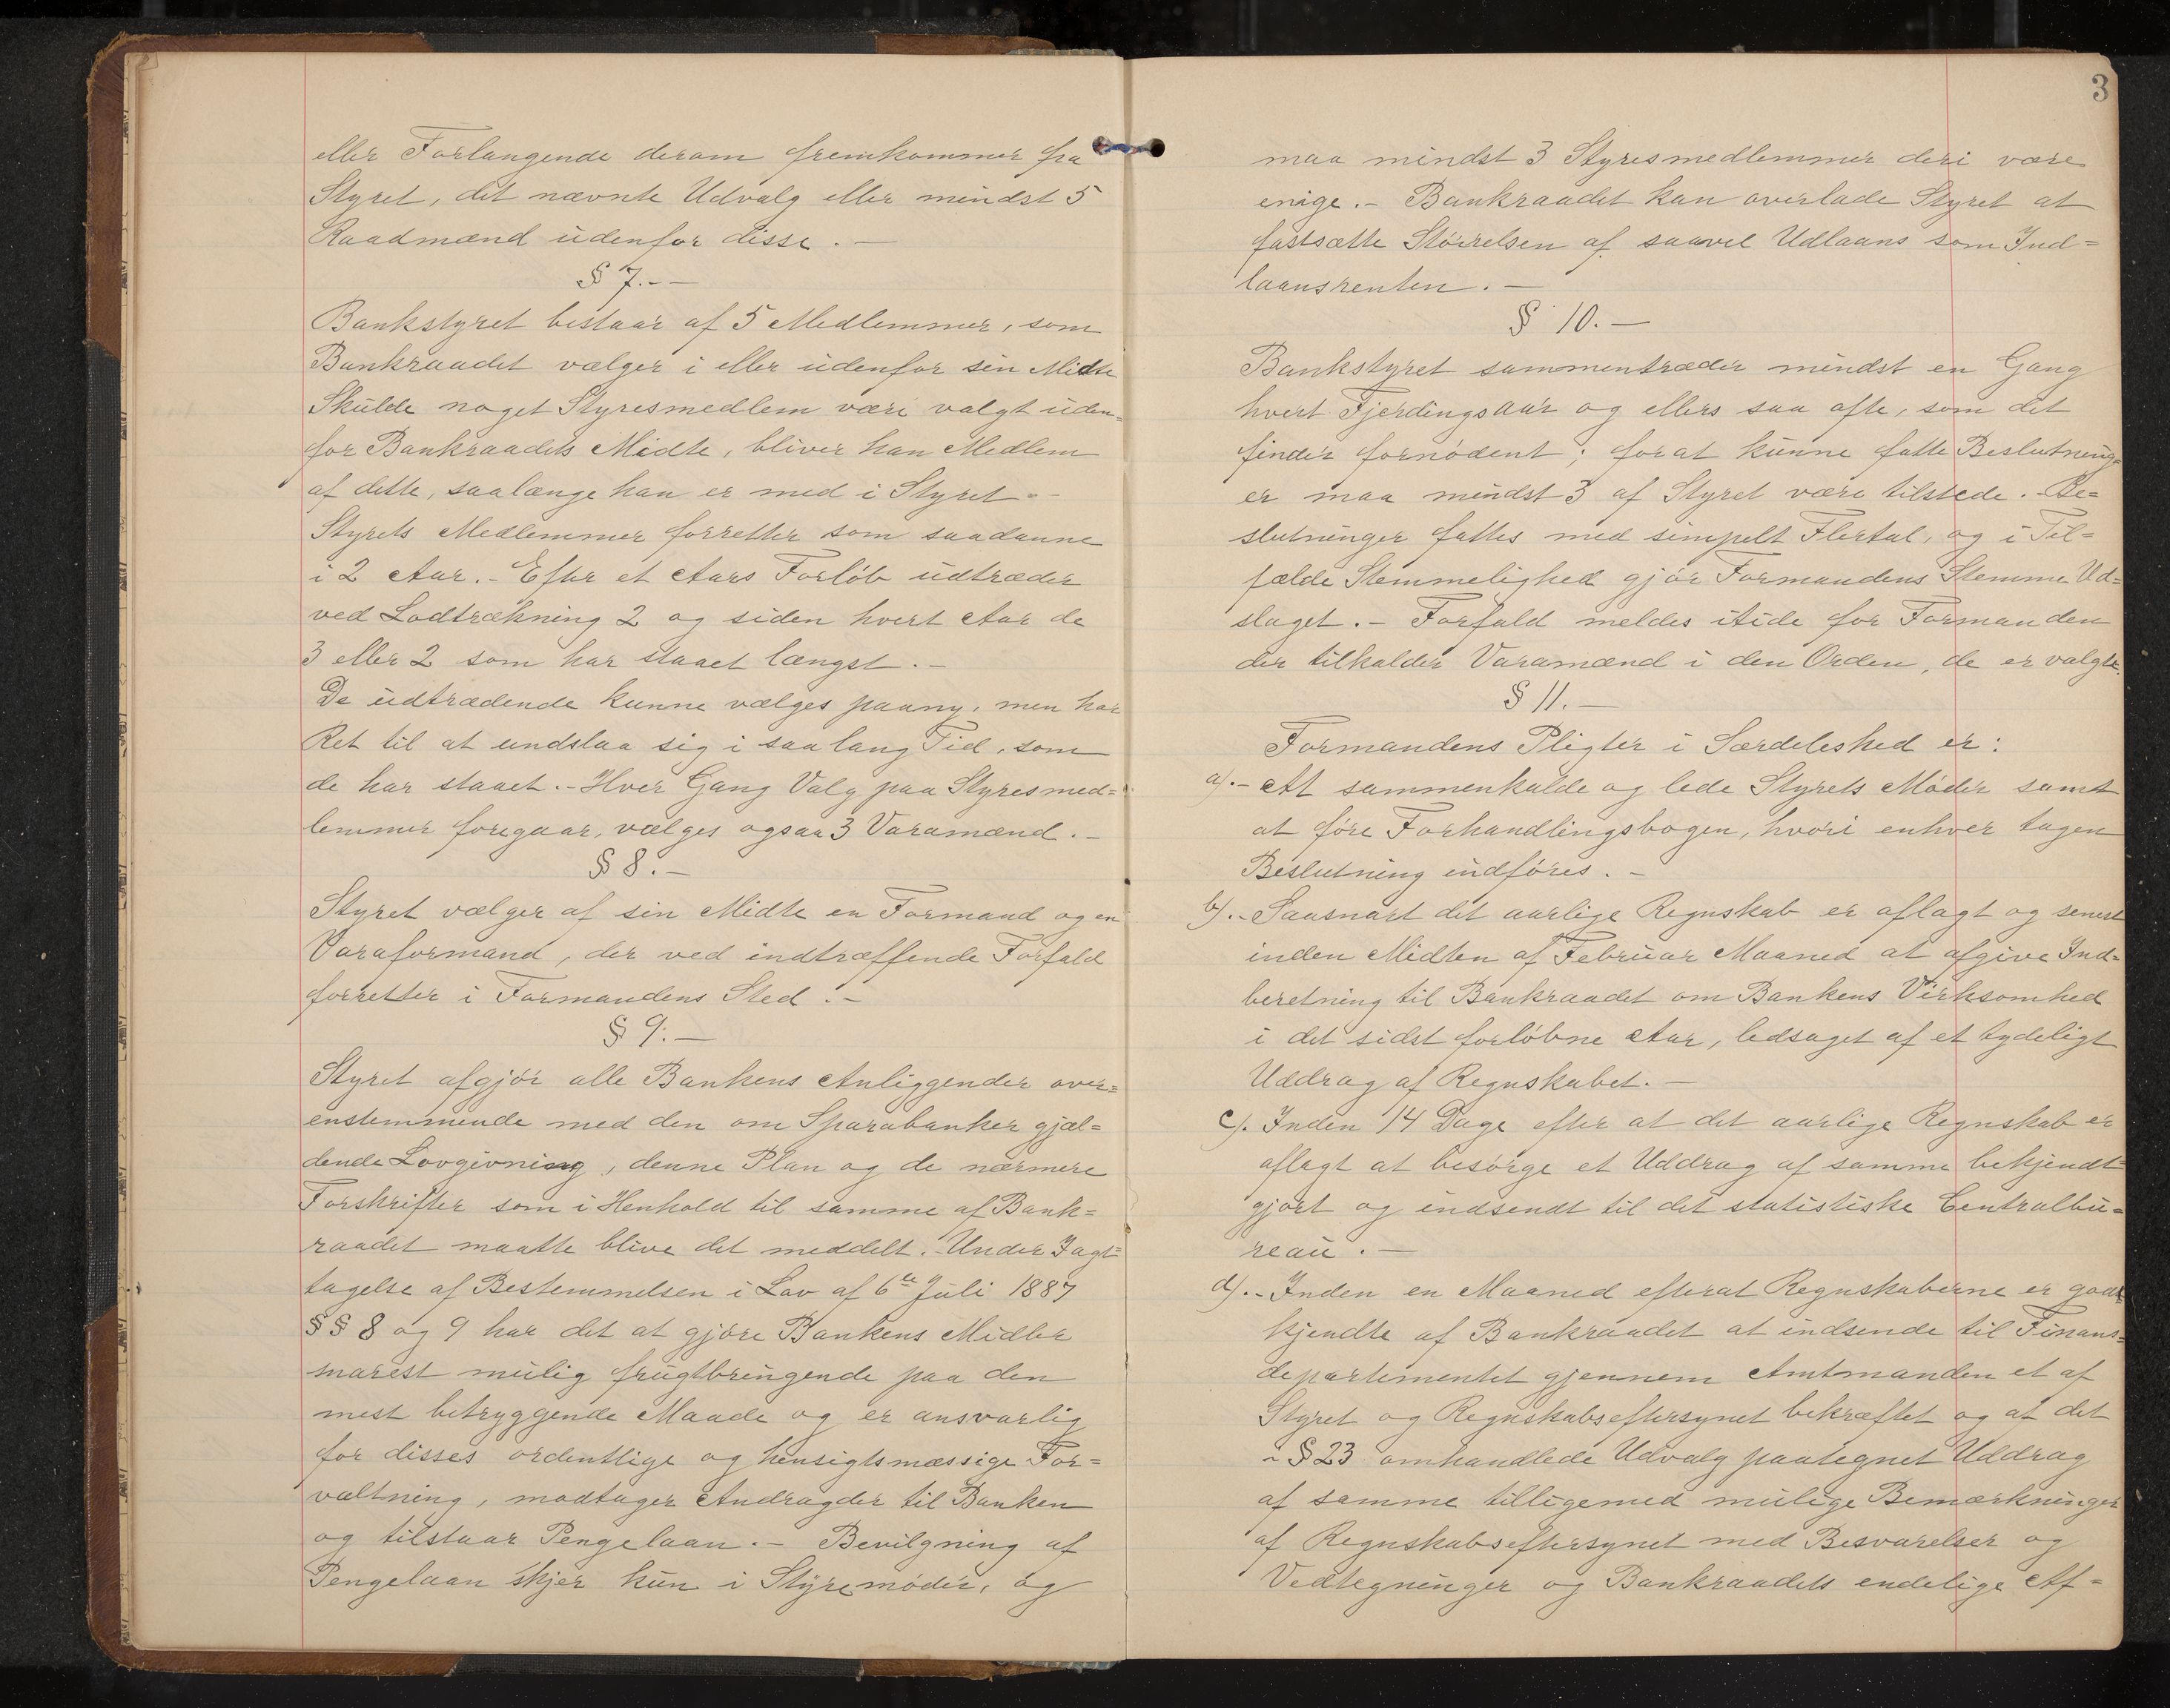 eller Forlangende derom fremkommer fra
Styret, det nævnte Udvalg eller mindst 5
Raadmænd udenfor disse. —
§ 7. - -
Bankstyret bestaar af 5 Medlemmer, som
Bankraadet vælger i eller udenfor sin Midte
Skulde noget Styresmedlem være valgt uden-
for Bankraadets Midte, bliver han Medlem
af dette, saalænge han er med i Styret. -
Styrets Medlemmer forretter som saadanne
i 2 Aar. - Efter et Aars Forløb udtræder
ved Lodtrækning 2 og siden hvert Aar de
3 eller 2 som har staaet længst. -
De udtrædende kunne vælges paany, men har
Ret til at undslaa sig i saa lang Tid, som
de har staaet. - Hver Gang Valg paa Styresmed=
lemmer foregaar, vælges ogsaa 3 Varamænd. -
§ 8. -
Styret vælger af sin Midte en Formand og en
Varaformand, der ved indtræffende Forfald
forretter i Formandens Sted. -
§ 9. —
Styret afgjør alle Bankens Anliggender over=
enstemmende med den om Sparebanker gjæl=
dende Lovgivning, denne Plan og de nærmere
Forskrifter som i Henhold til samme af Bank=
raadet maatte blive det meddelt. - Under Iagt=
tagelse af Bestemmelsen i Lov af 6te Juli 1887
§§ 8 og 9 har det at gjøre Bankens Midler
snarest mulig frugtbringende paa den
mest betryggende Maade og er ansvarlig
for disses ordentlige og hensigtsmæssige For=
valtning, modtager Andragder til Banken
og tilstaar Pengelaan. - Bevilgning af
Pengelaan skjer kun i Styremøder, og
3
maa mindst 3 Styresmedlemmer deri være
enige. - Bankraadet kan overlade Styret at
fastsætte Størrelsen af saavel Udlaans som Ind=
laansrenten. —
§ 10. —
Bankstyret sammentræder mindst en Gang
hvert Fjerdingsaar og ellers saa ofte, som det
finder fornødent; forat kunne fatte Beslutning=
er maa mindst 3 af Styret være tilstede. - Be=
slutninger fattes med simpelt Flertal, og i Til=
fælde Stemmelighed gjør Formandens Stemme Ud=
slaget. - Forfald meldes itide for Formanden
der tilkalder Varamænd i den Orden, de er valgte.
§ 11. —
Formandens Pligter i Særdeleshed er:
a). - At sammenkalde og lede Styrets Møder samt
at føre Forhandlingsbogen, hvori enhver tagen
Beslutning indføres. -
b). - Saasnart det aarlige Regnskab er aflagt og senest
inden Midten af Februar Maaned at afgive Ind=
beretning til Bankraadet om Bankens Virksomhed
i det sidst forløbne Aar, ledsaget af et tydeligt
Uddrag af Regnskabet. —
c). Inden 14 Dage efter at det aarlige Regnskab er
aflagt at besørge et Uddrag af samme bekjendt=
gjort og indsendt til det statistiske Centralbu=
reau. —
d). - Inden en Maaned efterat Regnskaberne er god=
kjendte af Bankraadet at indsende til Finans=
departementet gjennem Amtmanden et af
Styret og Regnskabseftersynet bekræftet og af det
i § 23 omhandlede Udvalg paategnet Uddrag
af samme tilligemed mulige Bemærkninger
af Regnskabseftersynet med Besvarelser og
Vedtegninger og Bankraadets endelige Af=